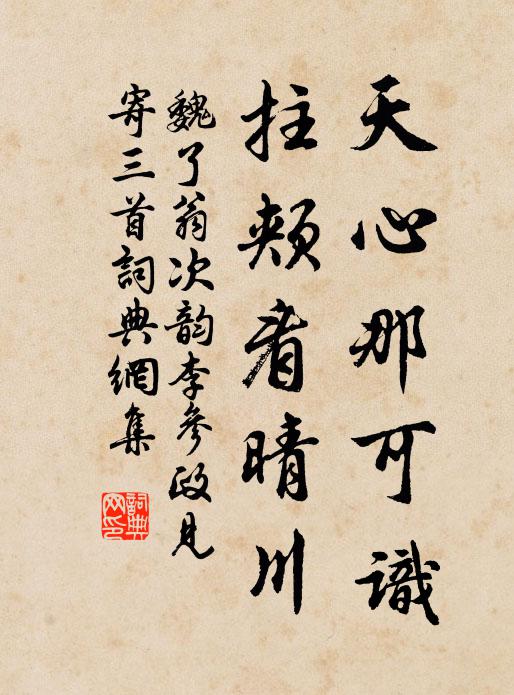 天心那可識
拄頰看晴川
魏了翁次韵李參政見
寄三首詞典網集
詞典
网印